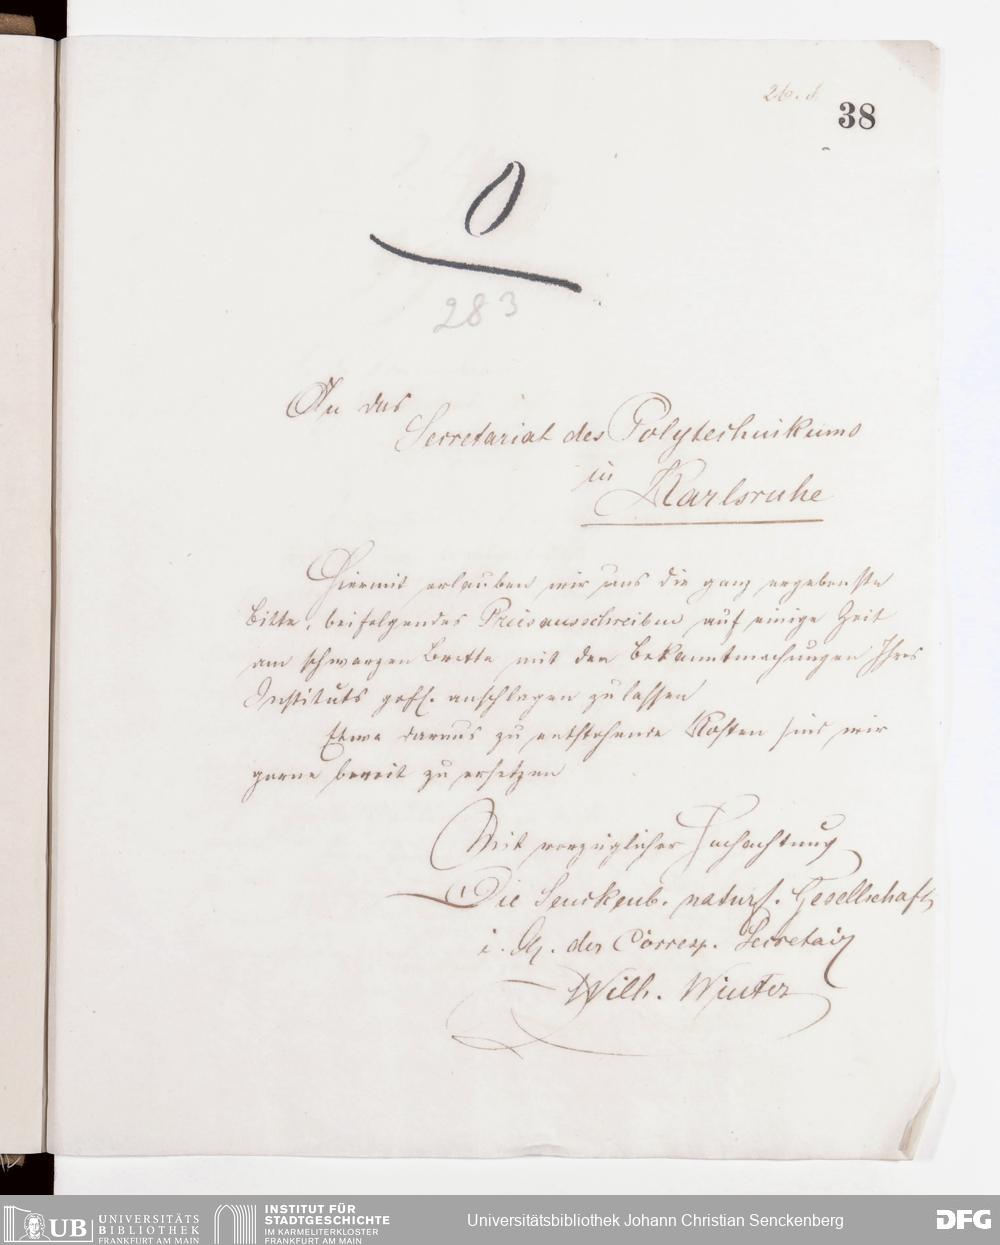 26. d.
38
0
283
An das
Secretariat des Polytechnikums
in
Karlsruhe
Hiermit erlauben wir uns die ganz ergebenste
Bitte, beifolgendes Preisausschreiben auf einige Zeit
am schwarzen Brette mit den Bekanntmachungen Ihres
Instituts gefl. anschlagen zu lassen
Etwa daraus zu entstehende Kosten sind wir
gerne bereit zu ersetzen
Mit vorzüglicher Hochachtung
Die Senckenb. naturf. Gesellschaft,
i. A. der Corresp. Secretair
Wilh. Winter
UB UNIVERSITÄTS
BIBLIOTHEK
FRANKFURT AM MAIN
INSTITUT FÜR
STADTGESCHICHTE
IM KARMELITERKLOSTER
FRANKFURT AM MAIN
Universitätsbibliothek Johann Christian Senckenberg
DFG